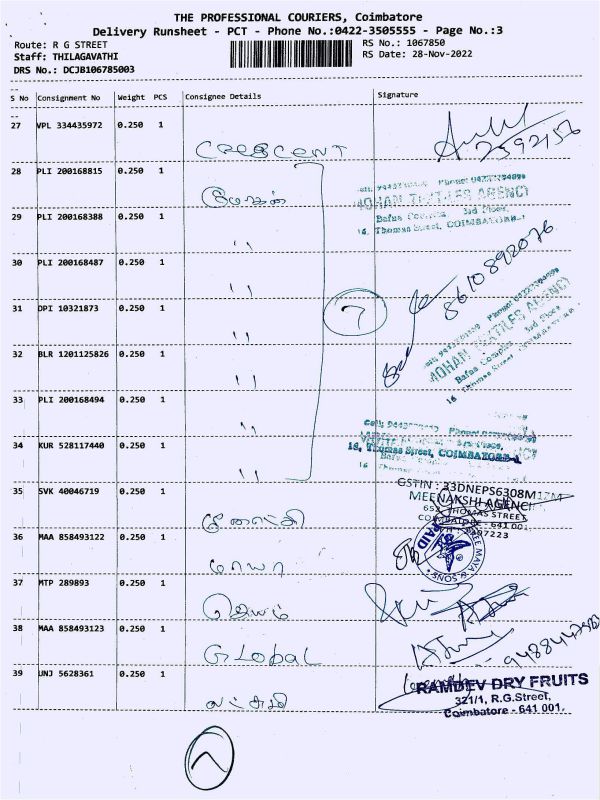 THE PROFESSIONAL COURIERS, Coimbatore
Delivery Runsheet - PCT - Phone No.:0422-3505555 - Page No.:3
Route: R G STREET
RS No.: 1067850
Staff: THILAGAVATHI
RS Date: 28-Nov-2022
DRS No.: DCJB106785003
S No Consignment No Weight PCS Consignee Details Signature
27 VPL 334435972 0.250 1 CRESCENT
2592156
28 PLI 200168815 0.250 1 மோகன்
MOHAN TEXTILES AGENCY
Bafna Complex 3rd Floor,
16, Thomas Street, COIMBATORE-1
29 PLI 200168388 0.250 1 ''
30 PLI 200168487 0.250 1 ''
8610892076
31 DPI 10321873 0.250 1 ''
7
MOHAN TEXTILES AGENCY
Bafna Complex 3rd Floor
16 Thomas Street
32 BLR 1201125826 0.250 1 ''
33 PLI 200168494 0.250 1 ''
34 KUR 528117440 0.250 1 ''
16, Thomas Street, COIMBATORE-1
35 SVK 40046719 0.250 1
GSTIN : 33DNEPS6308M1ZM
MEENAKSHI AGENCY
652, THOMAS STREET
COIMBATORE - 641 001.
36 MAA 858493122 0.250 1 மாயா
SREE MAYA & SONS
PAID
37 MTP 289893 0.250 1 ஜெயம்
38 MAA 858493123 0.250 1 GLobal
39 UNJ 5628361 0.250 1 லட்சுமி
RAMDEV DRY FRUITS
321/1, R.G.Street,
Coimbatore - 641 001.